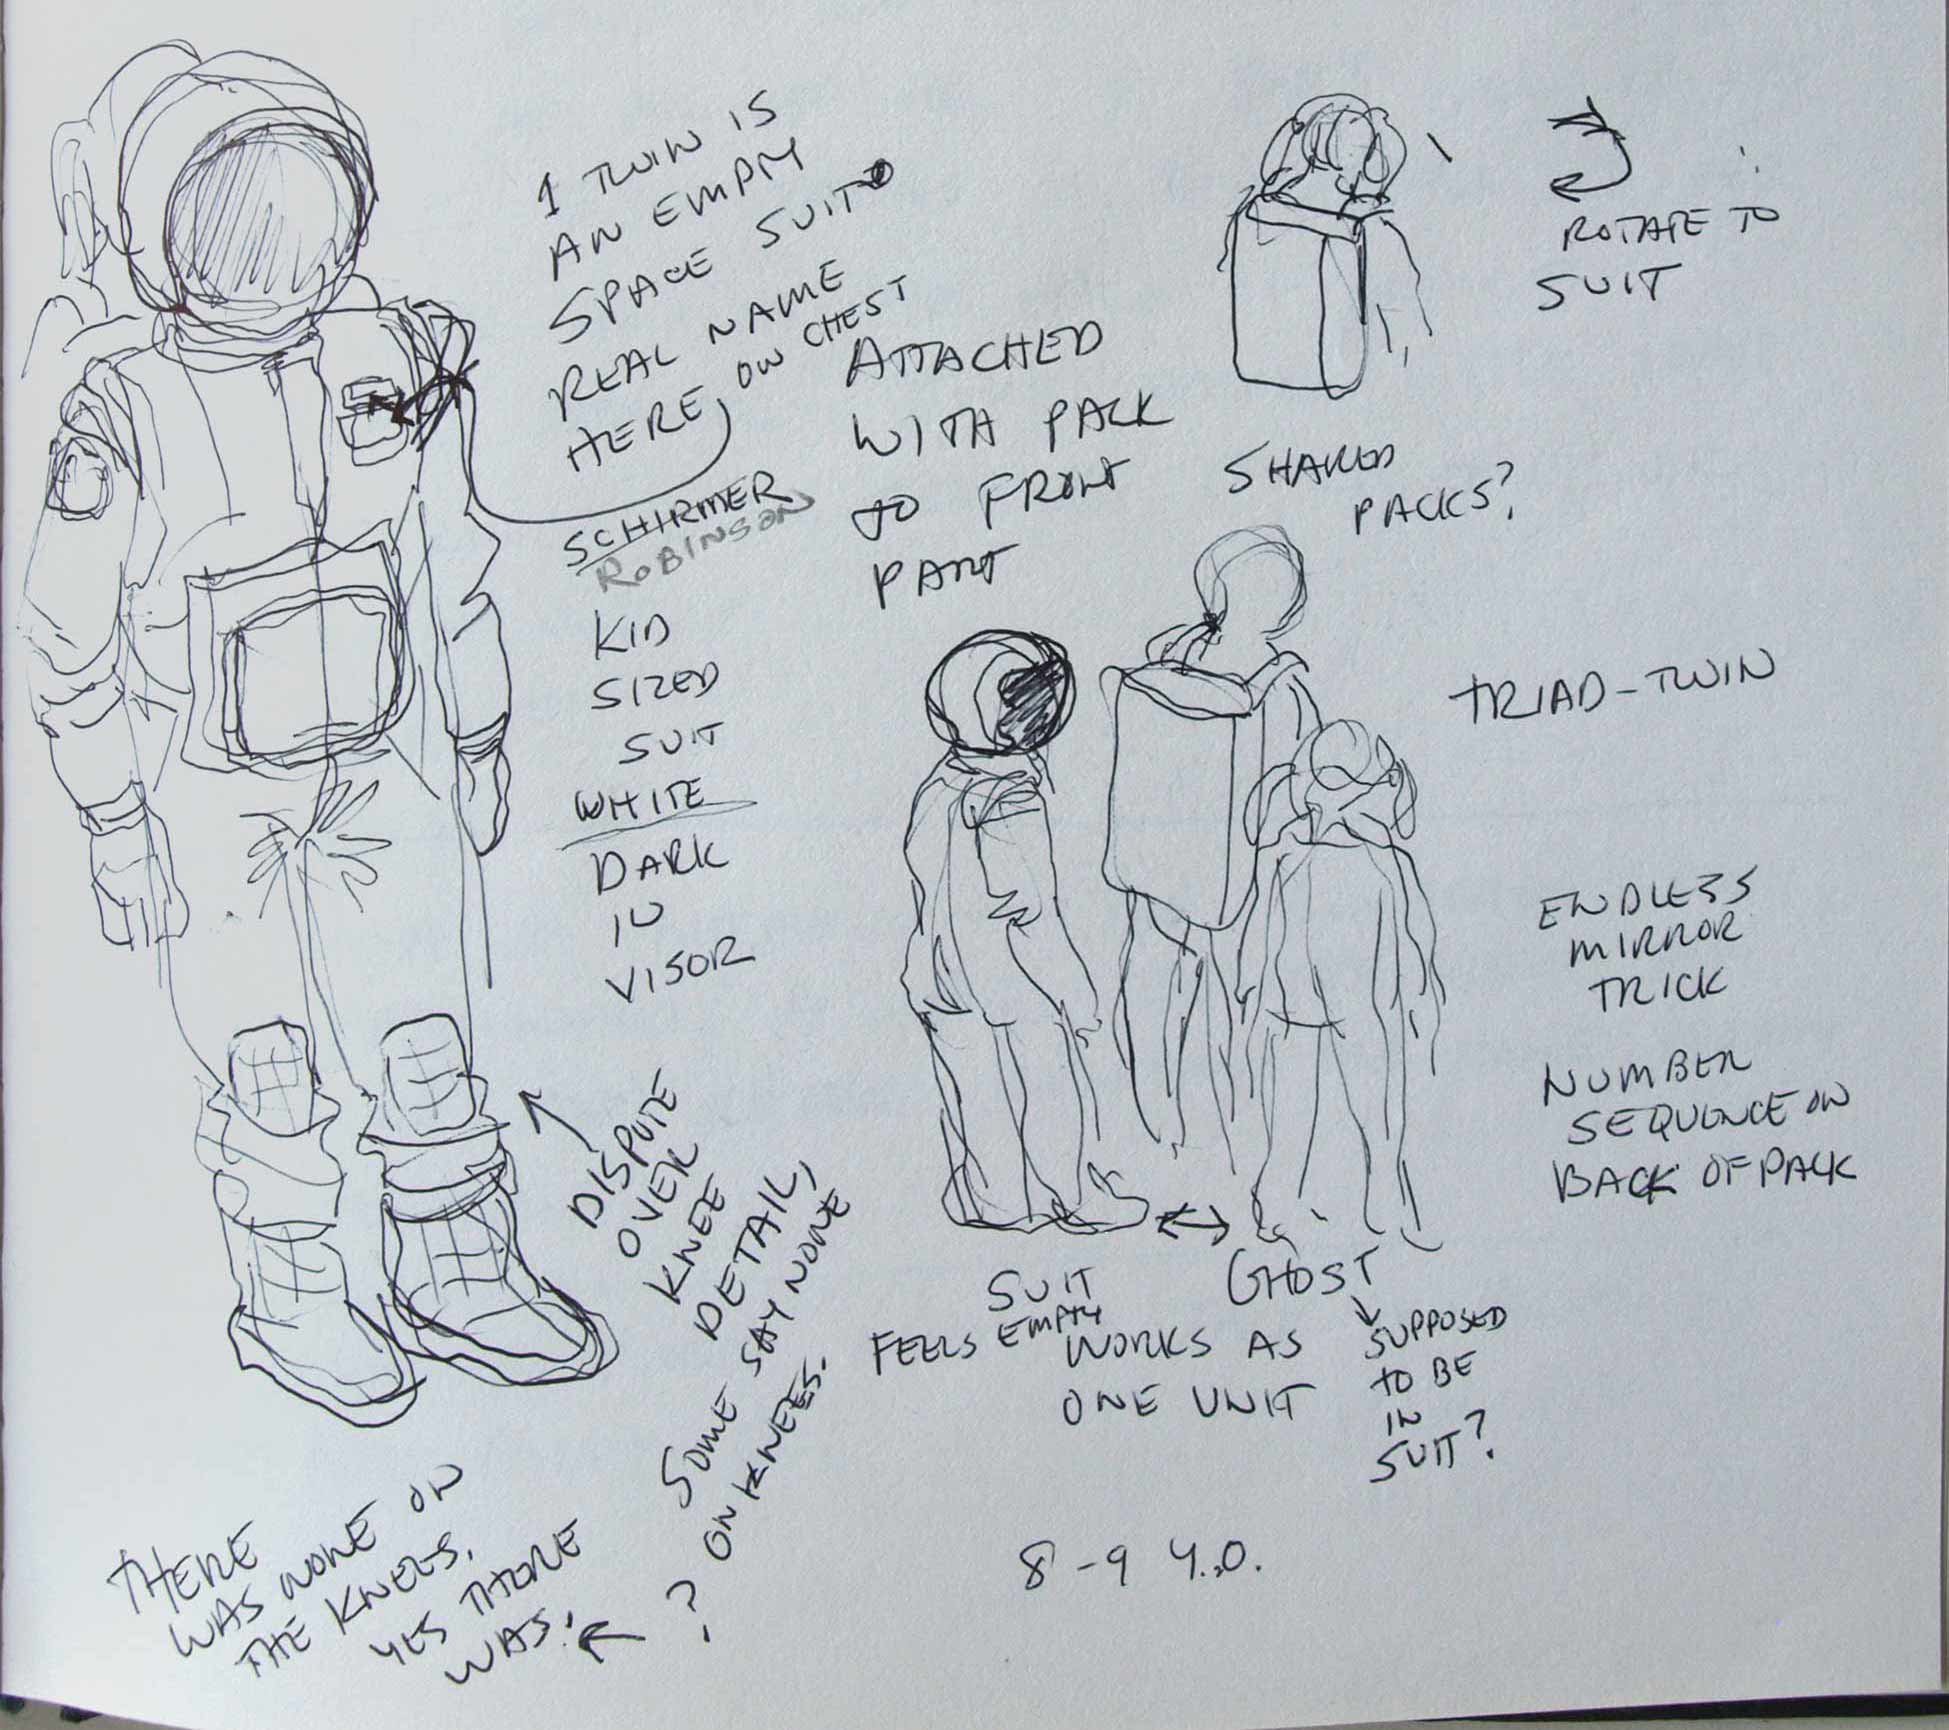 1 TWIN IS
AN EMPTY
SPACE SUIT
REAL NAME
HERE ON CHEST
SCHIRMER
ROBINSON
KID
SIZED
SUIT
WHITE
DARK
IN
VISOR
ATTACHED
WITH PACK
TO FRONT
PART
ROTATE TO
SUIT
SHARED
PACKS?
TRIAD-TWIN
ENDLESS
MIRROR
TRICK
NUMBER
SEQUENCE ON
BACK OF PACK
SUIT
FEELS EMPTY
GHOST
WORKS AS
ONE UNIT
SUPPOSED
TO BE
IN
SUIT?
8-9 Y.O.
DISPUTE
OVER
KNEE
DETAIL,
SOME SAY NONE
ON KNEES.
?
THERE
WAS NONE ON
THE KNEES.
YES THERE
WAS!